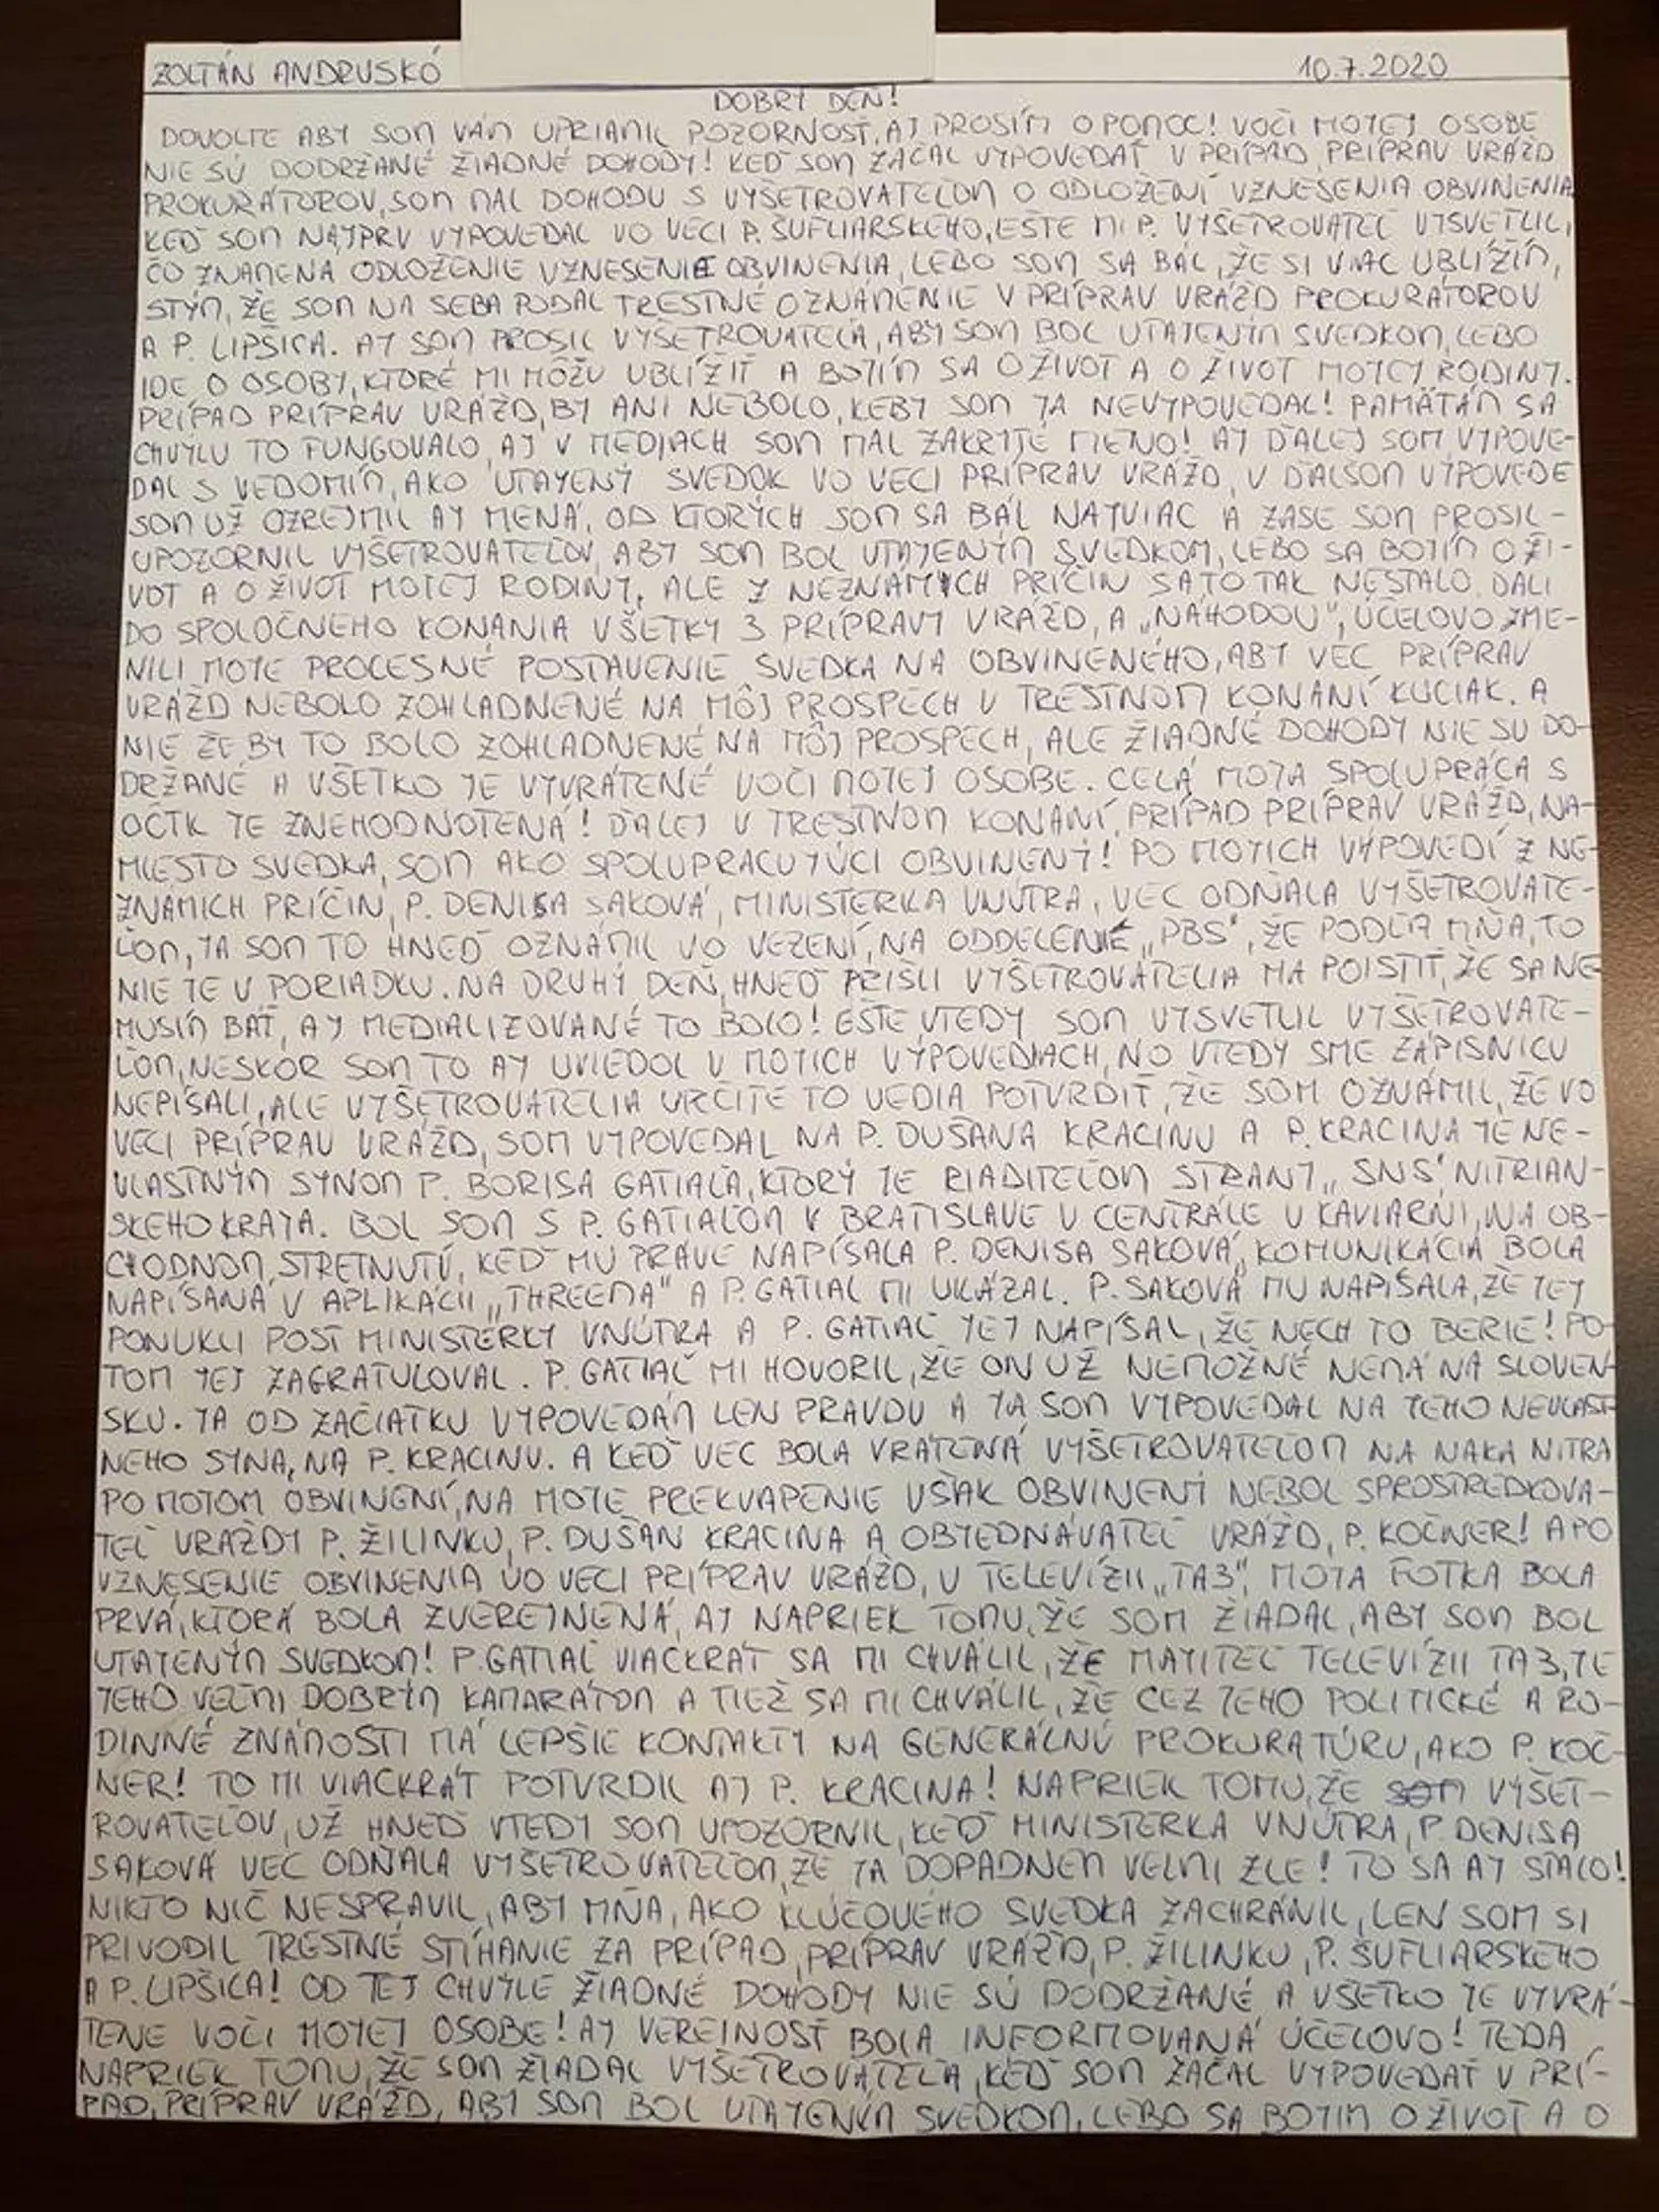 ZOLTÁN ANDRUSKÓ 10.7.2020
DOBRÝ DEŇ!
DOVOLTE ABY SOM VÁM UPRIAMIL POZORNOSŤ, AJ PROSÍM O POMOC! VOČI MOJEJ OSOBE
NIE SÚ DODRŽANÉ ŽIADNÉ DOHODY! KEĎ SOM ZAČAL VYPOVEDAŤ V PRÍPAD, PRÍPRAV VRÁŽD
PROKURÁTOROV, SOM MAL DOHODU S VYŠETROVATEĽOM O ODLOŽENÍ VZNESENIA OBVINENIA
KEĎ SOM NAJPRV VYPOVEDAL VO VECI P. ŠUFLIARSKEHO, EŠTE MI P. VYŠETROVATEĽ VYSVETLIL,
ČO ZNAMENÁ ODLOŽENIE VZNESENIE OBVINENIA, LEBO SOM SA BÁL, ŽE SI VIAC UBLÍŽÍM,
STÝM, ŽE SOM NA SEBA PODAL TRESTNÉ OZNÁMENIE V PRÍPRAV VRÁŽD PROKURÁTOROV
A P. LIPŠICA. AJ SOM PROSIL VYŠETROVATEĽA, ABY SOM BOL UTAJENÝM SVEDKOM, LEBO
IDE O OSOBY, KTORÉ MI MÔŽU UBLÍŽIŤ A BOJÍM SA O ŽIVOT A O ŽIVOT MOJEJ RODINY.
PRÍPAD PRÍPRAV VRÁŽD, BY ANI NEBOLO, KEBY SOM JA NEVYPOVEDAL! PAMÄTÁM SA
CHVÝLU TO FUNGOVALO, AJ V MEDJACH SOM MAL ZAKRYTÉ MENO! AJ ĎALEJ SOM VYPOVE-
DAL S VEDOMÍM, AKO UTAJENÝ SVEDOK VO VECI PRÍPRAV VRÁŽD, V ĎALŠOM VÝPOVEDE
SOM UŽ OZREJMIL AJ MENÁ, OD KTORÝCH SOM SA BÁL NAJVIAC A ZASE SOM PROSIL -
UPOZORNIL VYŠETROVATEĽOV, ABY SOM BOL UTAJENÝM SVEDKOM, LEBO SA BOJÍM O ŽI-
VOT A O ŽIVOT MOJEJ RODINY, ALE Z NEZNÁMYCH PRÍČIN SA TO TAK NESTALO. DALI
DO SPOLOČNÉHO KONANIA VŠETKY 3 PRÍPRAVY VRÁŽD, A „NÁHODOU“, ÚČELOVO ZME-
NILI MOJE PROCESNÉ POSTAVENIE SVEDKA NA OBVINENÉHO, ABY VEC PRÍPRAV
VRÁŽD NEBOLO ZOHLADNENÉ NA MÔJ PROSPECH V TRESTNOM KONANÍ KUCIAK. A
NIE ŽE BY TO BOLO ZOHLADNENÉ NA MÔJ PROSPECH, ALE ŽIADNÉ DOHODY NIE SÚ DO-
DRŽANÉ A VŠETKO JE VYVRÁTENÉ VOČI MOJEJ OSOBE. CELÁ MOJA SPOLUPRÁCA S
OČTK JE ZNEHODNOTENÁ! ĎALEJ V TRESTNOM KONANÍ, PRÍPAD PRÍPRAV VRÁŽD, NA-
MIESTO SVEDKA, SOM AKO SPOLUPRACUJÚCI OBVINENÝ! PO MOJICH VÝPOVEDÍ Z NE-
ZNÁMICH PRÍČIN, P. DENISA SAKOVÁ, MINISTERKA VNÚTRA, VEC ODŇALA VYŠETROVATE-
ĽOM, JA SOM TO HNEĎ OZNÁMIL VO VEZENÍ, NA ODDELENIE „PBS“, ŽE PODĽA MŇA, TO
NIE JE V PORIADKU. NA DRUHÝ DEŇ, HNEĎ PRIŠLI VYŠETROVATELIA MA POISTIŤ, ŽE SA NE
MUSÍM BÁŤ, AJ MEDIALIZOVANÉ TO BOLO! EŠTE VTEDY SOM VYSVETLIL VYŠETROVATE-
ĽOM, NESKÔR SOM TO AJ UVIEDOL V MOJICH VÝPOVEDIACH, NO VTEDY SME ZÁPISNICU
NEPÍSALI, ALE VYŠETROVATELIA URČITE TO VEDIA POTVRDIŤ, ŽE SOM OZNÁMIL, ŽE VO
VECI PRÍPRAV VRÁŽD, SOM VYPOVEDAL NA P. DUŠANA KRACINU A P. KRACINA JE NE-
VLASTNÝM SYNOM P. BORISA GATIAĽA, KTORÝ JE RIADITEĽOM STRANY „SNS“ NITRIAN-
SKEHO KRAJA. BOL SOM S P. GATIAĽOM V BRATISLAVE V CENTRÁLE V KAVIARNI, NA OB-
CHODNOM STRETNUTÚ, KEĎ MU PRÁVE NAPÍSALA P. DENISA SAKOVÁ, KOMUNIKÁCIA BOLA
NAPÍSANÁ V APLIKÁCII „THREEMA“ A P. GATIAL MI UKÁZAL. P. SAKOVÁ MU NAPÍSALA, ŽE JEJ
PONUKLI POST MINISTERKY VNÚTRA A P. GATIAĽ JEJ NAPÍSAL, ŽE NECH TO BERIE! PO-
TOM JEJ ZAGRATULOVAL. P. GATIAĽ MI HOVORIL, ŽE ON UŽ NEMOŽNÉ NEMÁ NA SLOVEN-
SKU. JA OD ZAČIATKU VYPOVEDÁM LEN PRAVDU A JA SOM VYPOVEDAL NA JEHO NEVLAST-
NEHO SYNA, NA P. KRACINU. A KEĎ VEC BOLA VRÁTENÁ VYŠETROVATEĽOM NA NAKA NITRA
PO MOJOM OBVINENÍ, NA MOJE PREKVAPENIE VŠAK OBVINENÝ NEBOL SPROSTREDKOVA-
TEĽ VRAŽDY P. ŽILINKU, P. DUŠAN KRACINA A OBJEDNÁVATEĽ VRÁŽD, P. KOČNER! A PO
VZNESENIE OBVINENIA VO VECI PRÍPRAV VRÁŽD, V TELEVÍZII „TA3“, MOJA FOTKA BOLA
PRVÁ, KTORÁ BOLA ZVEREJNENÁ, AJ NAPRIEK TOMU, ŽE SOM ŽIADAL, ABY SOM BOL
UTAJENÝM SVEDKOM! P. GATIAĽ VIACKRÁT SA MI CHVÁLIL, ŽE MAJITEĽ TELEVÍZII TA3, JE
JEHO VEĽMI DOBRÝM KAMARÁTOM A TIEŽ SA MI CHVÁLIL, ŽE CEZ JEHO POLITICKÉ A RO-
DINNÉ ZNÁMOSTI MÁ LEPŠIE KONTAKTY NA GENERÁLNÚ PROKURATÚRU, AKO P. KOČ-
NER! TO MI VIACKRÁT POTVRDIL AJ P. KRACINA! NAPRIEK TOMU, ŽE SOM VYŠET-
ROVATEĽOV, UŽ HNEĎ VTEDY SOM UPOZORNIL, KEĎ MINISTERKA VNÚTRA, P. DENISA
SAKOVÁ VEC ODŇALA VYŠETROVATEĽOM, ŽE JA DOPADNEM VEĽMI ZLE! TO SA AJ STALO!
NIKTO NIČ NESPRAVIL, ABY MŇA, AKO KĽÚČOVÉHO SVEDKA ZACHRÁNIL, LEN SOM SI
PRIVODIL TRESTNÉ STÍHANIE ZA PRÍPAD, PRÍPRAV VRÁŽD, P. ŽILINKU, P. ŠUFLIARSKEHO
A P. LIPŠICA! OD TEJ CHVÝLE ŽIADNÉ DOHODY NIE SÚ DODRŽANÉ A VŠETKO JE VYVRÁ-
TENE VOČI MOJEJ OSOBE! AJ VEREJNOSŤ BOLA INFORMOVANÁ ÚČELOVO! TEDA,
NAPRIEK TOMU, ŽE SOM ŽIADAL VYŠETROVATEĽA, KEĎ SOM ZAČAL VYPOVEDAŤ V PRÍ-
PAD, PRÍPRAV VRÁŽD, ABY SOM BOL UTAJENÝM SVEDKOM, LEBO SA BOJÍM O ŽIVOT A O